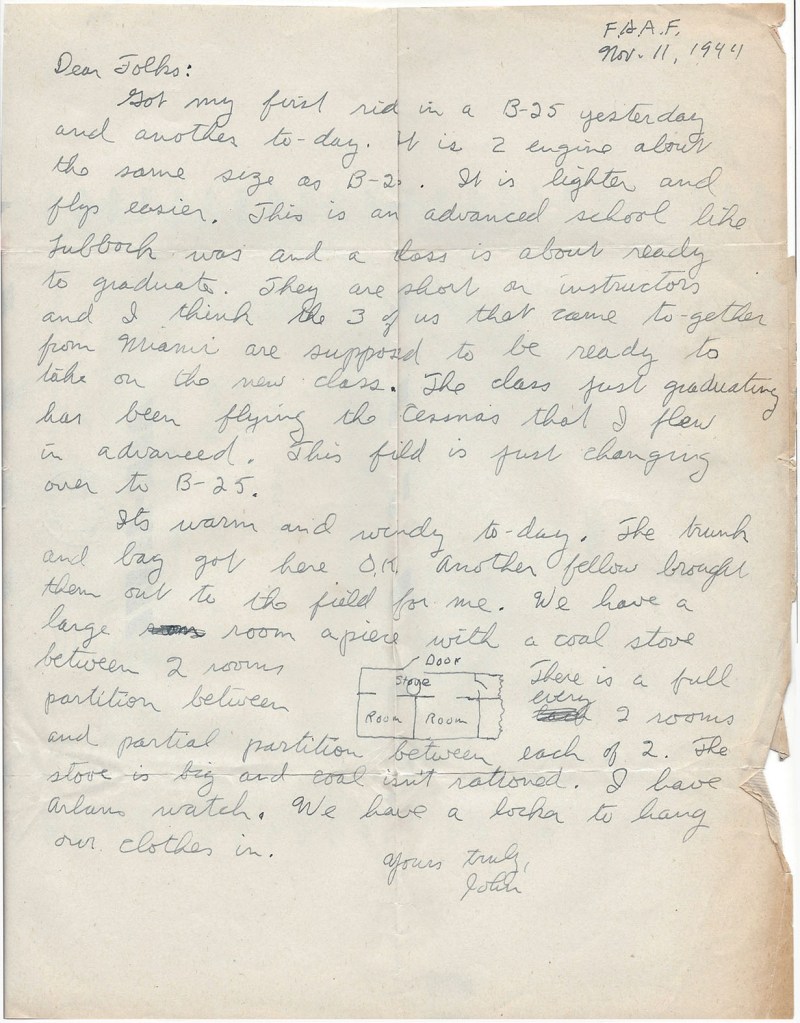 F.A.A.F.
Nov. 11, 1944
Dear Folks:
Got my first rid in a B-25 yesterday
and another to-day. It is 2 engine about
the same size as B-2 . It is lighter and
flys easier. This is an advanced school like
Lubbock was and a class is about ready
to graduate. They are short on instructors
and I think the 3 of us that came to-gether
from Miami are supposed to be ready to
take on the new class. The class just graduating
has been flying the Cessnas that I flew
in advanced. This fild is just changing
over to B-25.
Its warm and windy to-day. The trunk
and bag got here O.K. Another fellow brought
them out to the field for me. We have a
large room apiece with a coal stove
between 2 rooms
Door
Stove
Room Room
There is a full
partition between
every 2 rooms
and partial partition between each of 2. The
stove is big and coal isn't rationed. I have
Arlans watch. We have a locker to hang
our clothes in.
Yours truly,
John